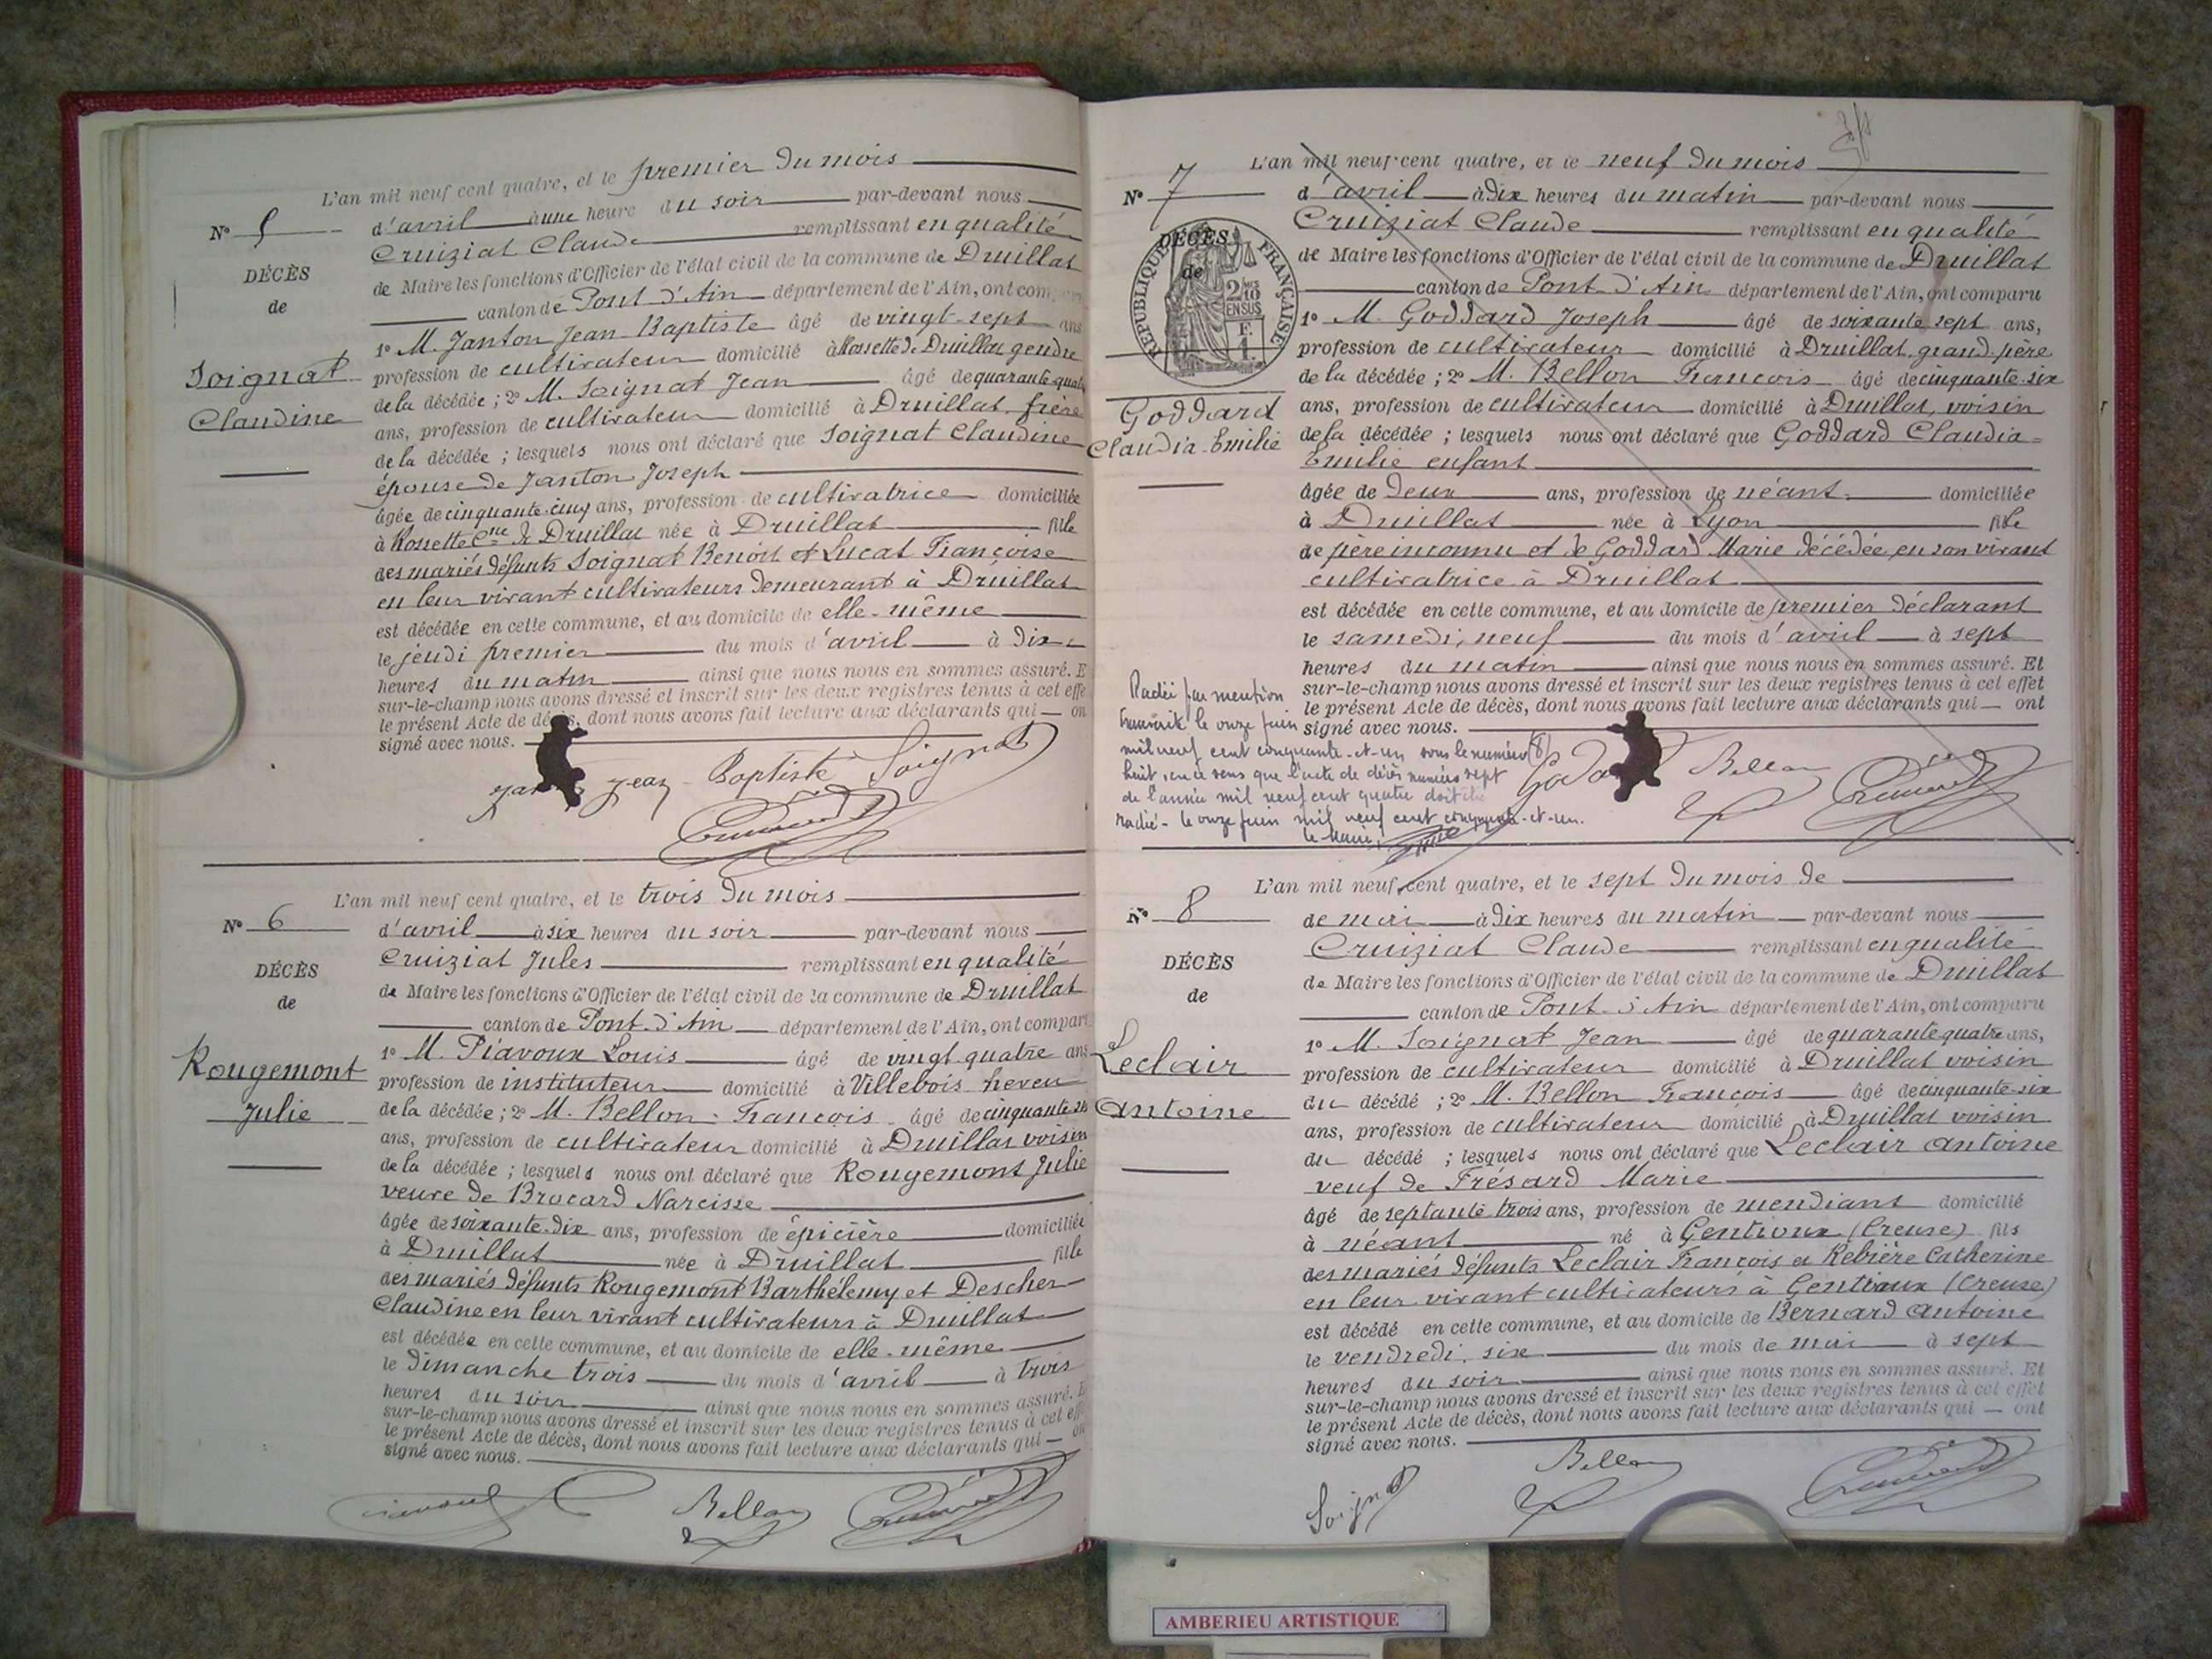 L'an mil neuf cent quatre, et le premier du mois
N° 5
d'avril à une heure du soir par-devant nous
Cruiziat Claude remplissant en qualité
DÉCÈS
de Maire les fonctions d'Officier de l'état civil de la commune de Druillat
de
canton de Pont d'Ain département de l'Ain, ont com
1° M. Janton Jean Baptiste âgé de vingt-sept ans
Soignat
profession de cultivateur domicilié à Rossette de Druillat gendre
de la décédée ; 2° M. Soignat Jean âgé de quarante-quatre
Claudine
ans, profession de cultivateur domicilié à Druillat, frère
de la décédée ; lesquels nous ont déclaré que Soignat Claudine
épouse de Janton Joseph
âgée de cinquante-cinq ans, profession de cultivatrice domiciliée
à Rossette Cne de Druillat née à Druillat fille
des mariés défunts Soignat Benoit et Lucat Françoise
en leur vivant cultivateurs demeurant à Druillat
est décédée en cette commune, et au domicile de elle-même
le jeudi premier du mois d'avril à dix
heures du matin ainsi que nous nous en sommes assuré. E
sur-le-champ nous avons dressé et inscrit sur les deux registres tenus à cet effe
le présent Acte de décès, dont nous avons fait lecture aux déclarants qui ont
signé avec nous.
Jean Baptiste Soignat
L'an mil neuf cent quatre, et le trois du mois
N° 6
d'avril à six heures du soir par-devant nous
Cruiziat Jules remplissant en qualité
DÉCÈS
de Maire les fonctions d'Officier de l'état civil de la commune de Druillat
de
canton de Pont d'Ain département de l'Ain, ont compar
1° M. Piavoux Louis âgé de vingt-quatre ans
Rougemont
profession de instituteur domicilié à Villebois neveu
Julie
de la décédée ; 2° M. Bellon François âgé de cinquante six
ans, profession de cultivateur domicilié à Druillat voisin
de la décédée ; lesquels nous ont déclaré que Rougemont Julie
veuve de Brocard Narcisse
âgée de soixante-dix ans, profession de épicière domiciliée
à Druillat née à Druillat fille
des mariés défunts Rougemont Barthélemy et Descher
Claudine en leur vivant cultivateurs à Druillat
est décédée en cette commune, et au domicile de elle-même
le dimanche trois du mois d'avril à trois
heures du soir ainsi que nous nous en sommes assuré. E
sur-le-champ nous avons dressé et inscrit sur les deux registres tenus à cet eff
le présent Acte de décès, dont nous avons fait lecture aux déclarants qui on
signé avec nous.
Bellon
L'an mil neuf cent quatre, et le neuf du mois
N° 7
d'avril à dix heures du matin par-devant nous
Cruiziat Claude remplissant en qualité
DÉCÈS
de
RÉPUBLIQUE FRANÇAISE
2 MES
10
EN SUS
F.
1.
de Maire les fonctions d'Officier de l'état civil de la commune de Druillat
canton de Pont d'Ain département de l'Ain, ont comparu
1° M. Goddard Joseph âgé de soixante sept ans,
profession de cultivateur domicilié à Druillat grand-père
de la décédée ; 2° M. Bellon François âgé de cinquante-six
Goddard
ans, profession de cultivateur domicilié à Druillat, voisin
Claudia-Emilie
de la décédée ; lesquels nous ont déclaré que Goddard Claudia-
Emilie enfant
âgée de deux ans, profession de néant domiciliée
à Druillat née à Lyon fille
de père inconnu et de Goddard Marie décédée en son vivant
cultivatrice à Druillat
est décédée en cette commune, et au domicile de premier déclarant
le samedi, neuf du mois d'avril à sept
heures du matin ainsi que nous nous en sommes assuré. Et
sur-le-champ nous avons dressé et inscrit sur les deux registres tenus à cet effet
le présent Acte de décès, dont nous avons fait lecture aux déclarants qui ont
signé avec nous.
Radié par mention
transcrite le onze juin
mil neuf cent cinquante-et-un sous le numéro (8)
huit, en ce sens que l'acte de décès numéro sept
de l'année mil neuf cent quatre doit être
radié - le onze juin mil neuf cent cinquante-et-un.
le Maire,
Bellon
L'an mil neuf cent quatre, et le sept du mois de
N° 8
de mai à dix heures du matin par-devant nous
Cruiziat Claude remplissant en qualité
DÉCÈS
de Maire les fonctions d'Officier de l'état civil de la commune de Druillat
de
canton de Pont d'Ain département de l'Ain, ont comparu
1° M. Soignat Jean âgé de quarante quatre ans,
Leclair
profession de cultivateur domicilié à Druillat voisin
Antoine
du décédé ; 2° M. Bellon François âgé de cinquante-six
ans, profession de cultivateur domicilié à Druillat voisin
du décédé ; lesquels nous ont déclaré que Leclair Antoine
veuf de Frésard Marie
âgé de septante trois ans, profession de mendiant domicilié
à néant né à Gentioux (Creuse) fils
des mariés défunts Leclair François et Rebière Catherine
en leur vivant cultivateurs à Gentioux (Creuse)
est décédé en cette commune, et au domicile de Bernard Antoine
le vendredi, six du mois de mai à sept
heures du soir ainsi que nous nous en sommes assuré. Et
sur-le-champ nous avons dressé et inscrit sur les deux registres tenus à cet effet
le présent Acte de décès, dont nous avons fait lecture aux déclarants qui ont
signé avec nous.
Soignat Bellon
AMBERIEU ARTISTIQUE